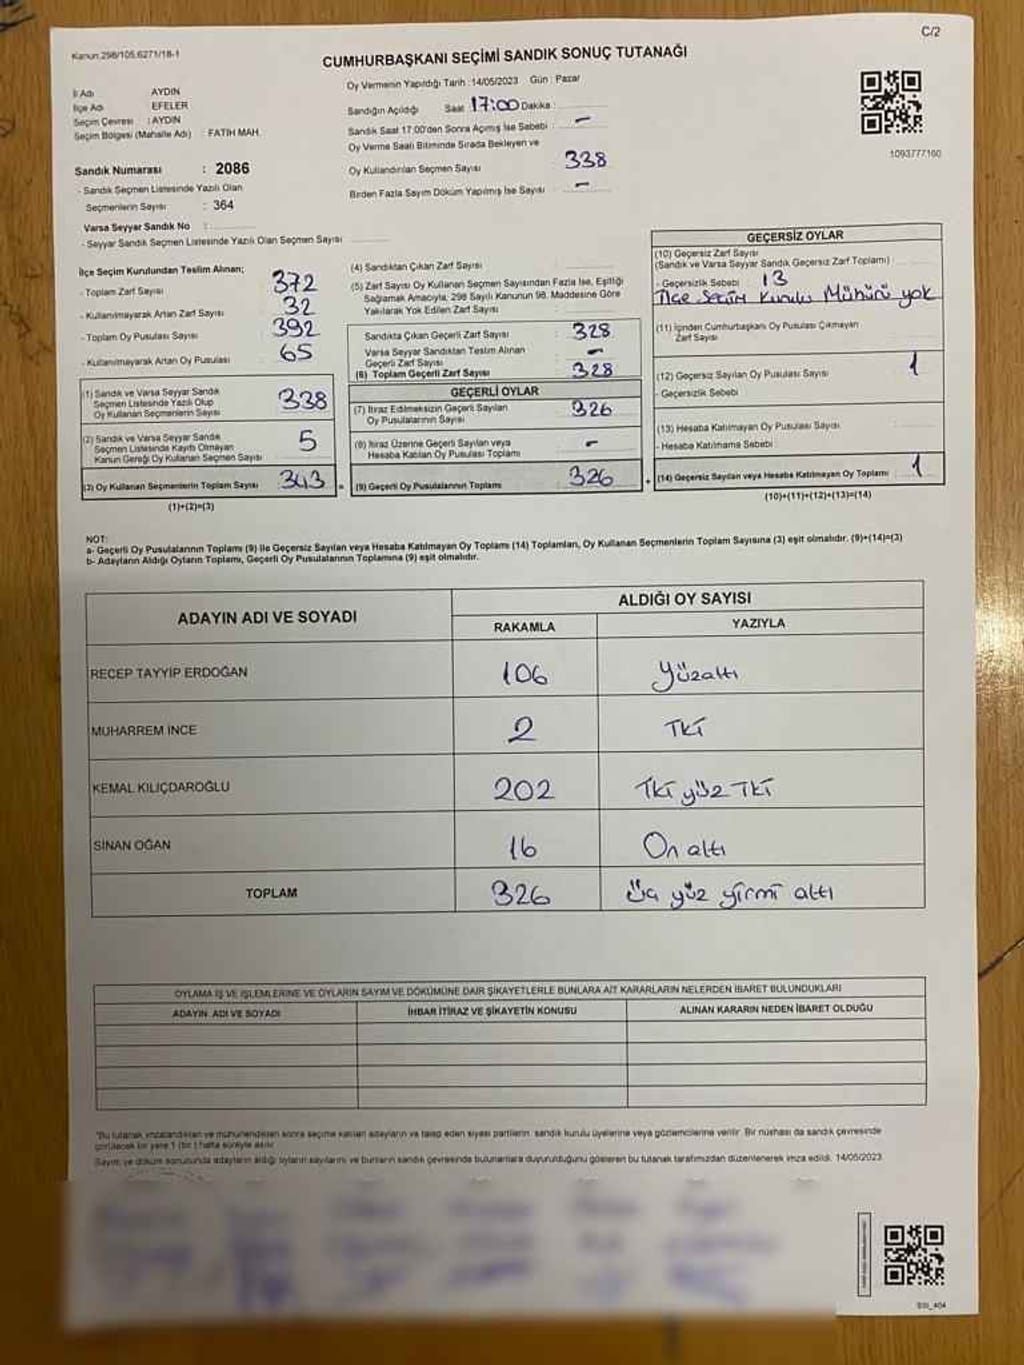 C/2
Kanun.298/105.6271/18-1
CUMHURBAŞKANI SEÇİMİ SANDIK SONUÇ TUTANAĞI
İl Adı AYDIN
İlçe Adı EFELER
Seçim Çevresi : AYDIN
Seçim Bölgesi (Mahalle Adı) : FATİH MAH.
Sandık Numarası : 2086
- Sandık Seçmen Listesinde Yazılı Olan
Seçmenlerin Sayısı : 364
Varsa Seyyar Sandık No :
- Seyyar Sandık Seçmen Listesinde Yazılı Olan Seçmen Sayısı
Oy Vermenin Yapıldığı Tarih : 14/05/2023 Gün : Pazar
Sandığın Açıldığı Saat 17:00 Dakika :
Sandık Saat 17:00'den Sonra Açımış İse Sebebi : -
Oy Verme Saati Bitiminde Sırada Bekleyen ve
Oy Kullandırılan Seçmen Sayısı 338
Birden Fazla Sayım Döküm Yapılmış İse Sayısı : -
1093777160
İlçe Seçim Kurulundan Teslim Alınan;
- Toplam Zarf Sayısı 372
- Kullanılmayarak Artan Zarf Sayısı 32
- Toplam Oy Pusulası Sayısı 392
- Kullanılmayarak Artan Oy Pusulası 65
(1) Sandık ve Varsa Seyyar Sandık
Seçmen Listesinde Yazılı Olup
Oy Kullanan Seçmenlerin Sayısı 338
(2) Sandık ve Varsa Seyyar Sandık
Seçmen Listesinde Kayıtlı Olmayan
Kanun Gereği Oy Kullanan Seçmen Sayısı 5
(3) Oy Kullanan Seçmenlerin Toplam Sayısı 343 =
(1)+(2)=(3)
(4) Sandıktan Çıkan Zarf Sayısı
(5) Zarf Sayısı Oy Kullanan Seçmen Sayısından Fazla İse, Eşitliği
Sağlamak Amacıyla; 298 Sayılı Kanunun 98. Maddesine Göre
Yakılarak Yok Edilen Zarf Sayısı
Sandıkta Çıkan Geçerli Zarf Sayısı 328
Varsa Seyyar Sandıktan Teslim Alınan
Geçerli Zarf Sayısı -
(6) Toplam Geçerli Zarf Sayısı 328
GEÇERLİ OYLAR
(7) İtiraz Edilmeksizin Geçerli Sayılan
Oy Pusulalarının Sayısı 326
(8) İtiraz Üzerine Geçerli Sayılan veya
Hesaba Katılan Oy Pusulası Toplamı -
(9) Geçerli Oy Pusulalarının Toplamı 326 +
GEÇERSİZ OYLAR
(10) Geçersiz Zarf Sayısı
(Sandık ve Varsa Seyyar Sandık Geçersiz Zarf Toplamı)
- Geçersizlik Sebebi 13
İlçe Seçim Kurulu Mühürü yok
(11) İçinden Cumhurbaşkanı Oy Pusulası Çıkmayan
Zarf Sayısı
(12) Geçersiz Sayılan Oy Pusulası Sayısı 1
- Geçersizlik Sebebi
(13) Hesaba Katılmayan Oy Pusulası Sayısı
- Hesaba Katılmama Sebebi
(14) Geçersiz Sayılan veya Hesaba Katılmayan Oy Toplamı 1
(10)+(11)+(12)+(13)=(14)
NOT:
a- Geçerli Oy Pusulalarının Toplamı (9) ile Geçersiz Sayılan veya Hesaba Katılmayan Oy Toplamı (14) Toplamları, Oy Kullanan Seçmenlerin Toplam Sayısına (3) eşit olmalıdır. (9)+(14)=(3)
b- Adayların Aldığı Oyların Toplamı, Geçerli Oy Pusulalarının Toplamına (9) eşit olmalıdır.
ADAYIN ADI VE SOYADI
ALDIĞI OY SAYISI
RAKAMLA YAZIYLA
RECEP TAYYİP ERDOĞAN 106 Yüzaltı
MUHARREM İNCE 2 İki
KEMAL KILIÇDAROĞLU 202 İki yüz İki
SİNAN OĞAN 16 On altı
TOPLAM 326 Üç yüz yirmi altı
OYLAMA İŞ VE İŞLEMLERİNE VE OYLARIN SAYIM VE DÖKÜMÜNE DAİR ŞİKAYETLERLE BUNLARA AİT KARARLARIN NELERDEN İBARET BULUNDUKLARI
ADAYIN ADI VE SOYADI İHBAR İTİRAZ VE ŞİKAYETİN KONUSU ALINAN KARARIN NEDEN İBARET OLDUĞU
"Bu tutanak imzalandıktan ve mühürlendikten sonra seçime katılan adayların ve talep eden siyasi partilerin sandık kurulu üyelerine veya gözlemcilerine verilir. Bir nüshası da sandık çevresinde
görülecek bir yere 1 (bir) hafta süreyle asılır.
Sayım ve döküm sonucunda adayların aldığı oyların sayılarını ve bunların sandık çevresinde bulunanlara duyurulduğunu gösteren bu tutanak tarafımızdan düzenlenerek imza edildi. 14/05/2023